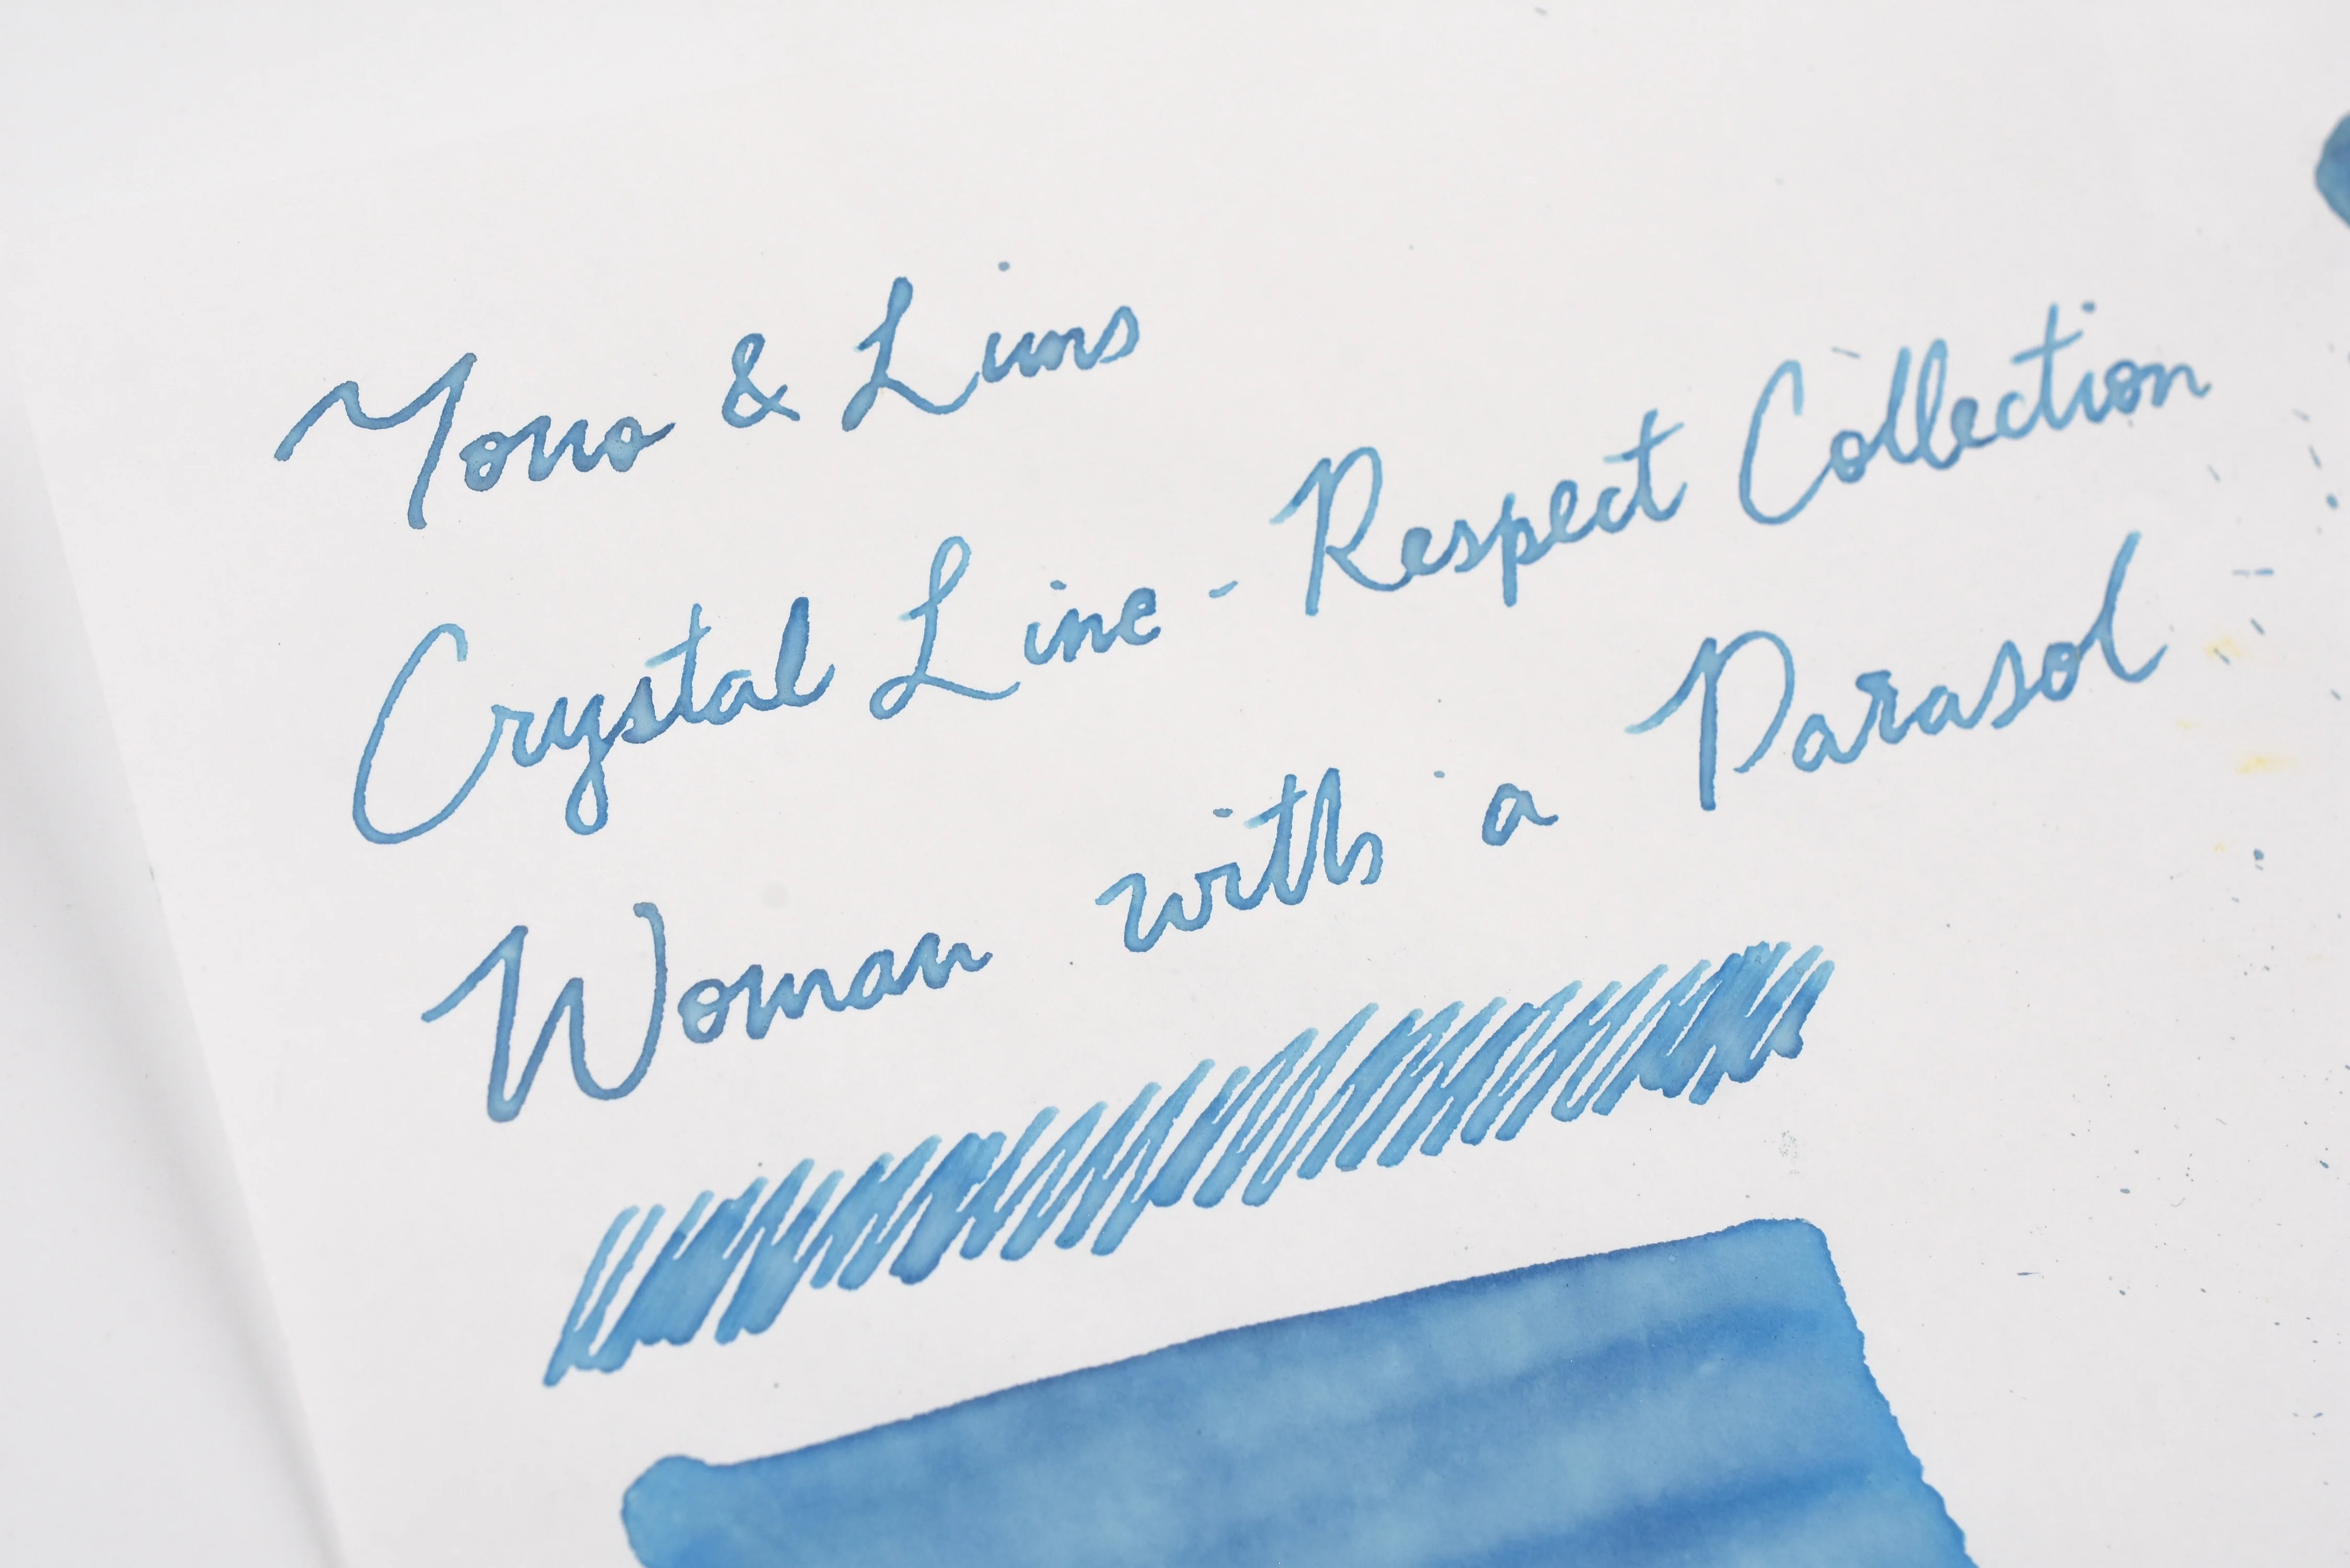 Tono & Lims
Crystal Line - Respect Collection
Woman with a Parasol